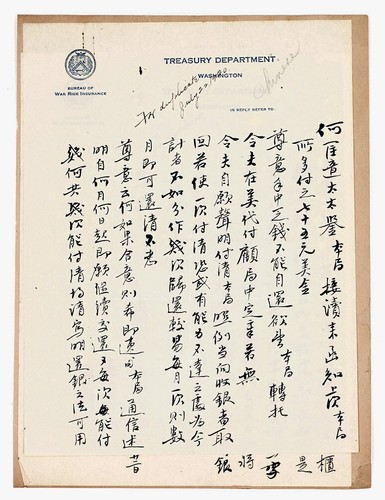 TREASURY DEPARTMENT
WASHINGTON
BUREAU OF
WAR RISK INSURANCE
IN REPLY REFER TO:
For duplicate
July 22 1920
Chinese
何 太太鑒 本局 接讀来函知上次 本局
所多付之七十五元美金
尊意手中之錢不能自還欲求 本局 轉托
令夫在美代付顧局中定 若無
令夫自願聲明付清 本局 照例当向收銀者取
回若使一次付清恐或有能力不達之處為今
計者不如分作幾次歸還較易每月一次則數
月即可還清不悉
尊意云何如果合意則希即 本局 通信述
明自何月何日起即願继續交還又每次能付
幾何共幾次能付清均清寫明還銀之法可用
櫃
是
將
銀